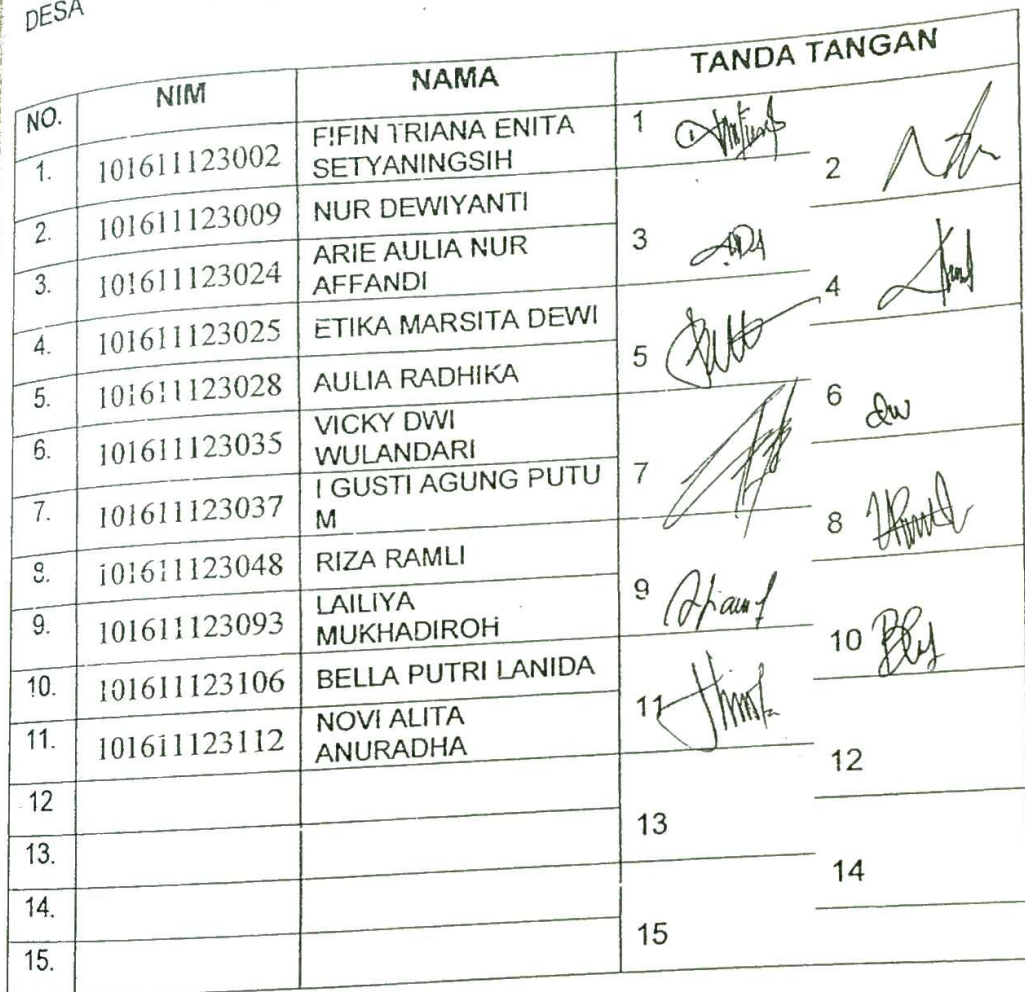 DESA
NO. NIM NAMA TANDA TANGAN
1. 101611123002 FIFIN TRIANA ENITA
SETYANINGSIH 1
2
2. 101611123009 NUR DEWIYANTI
3. 101611123024 ARIE AULIA NUR
AFFANDI 3
4
4. 101611123025 ETIKA MARSITA DEWI
5. 101611123028 AULIA RADHIKA 5
6
6. 101611123035 VICKY DWI
WULANDARI
7. 101611123037 I GUSTI AGUNG PUTU
M 7
8
8. 101611123048 RIZA RAMLI
9. 101611123093 LAILIYA
MUKHADIROH 9
10
10. 101611123106 BELLA PUTRI LANIDA
11. 101611123112 NOVI ALITA
ANURADHA 11
12
12
13. 13
14
14.
15. 15